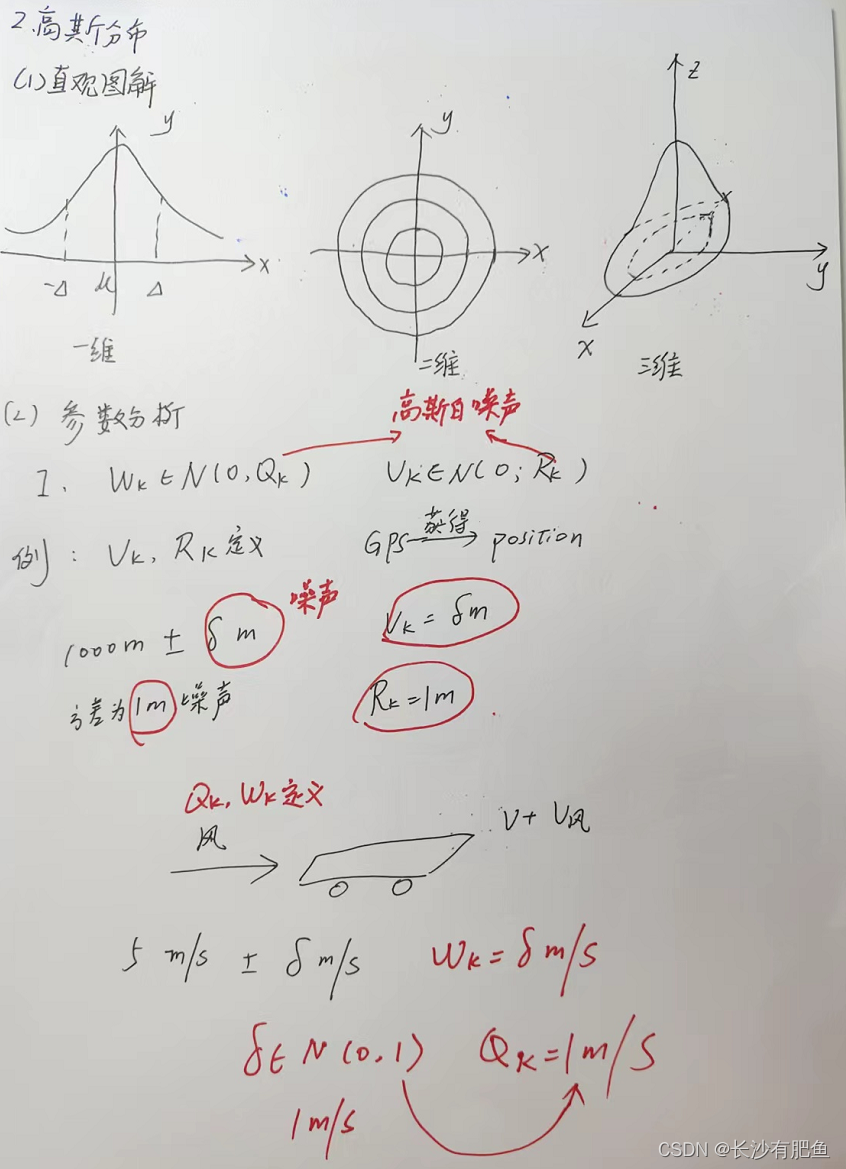 2.高斯分布
(1)直观图解
y
y
z
x
-Δ μ Δ
x
y
x
一维
二维
三维
(2) 参数分析
高斯白噪声
I. WK∈N(0,QK) VK∈N(0;RK)
例: VK, RK定义
GPS 获得 position
1000m ± δm 噪声
VK = δm
方差为1m噪声
RK=1m
QK, WK定义
风
V+V风
5 m/s ± δ m/s
WK=δ m/s
δ∈N(0,1) QK=1m/s
1m/s
CSDN @长沙有肥鱼